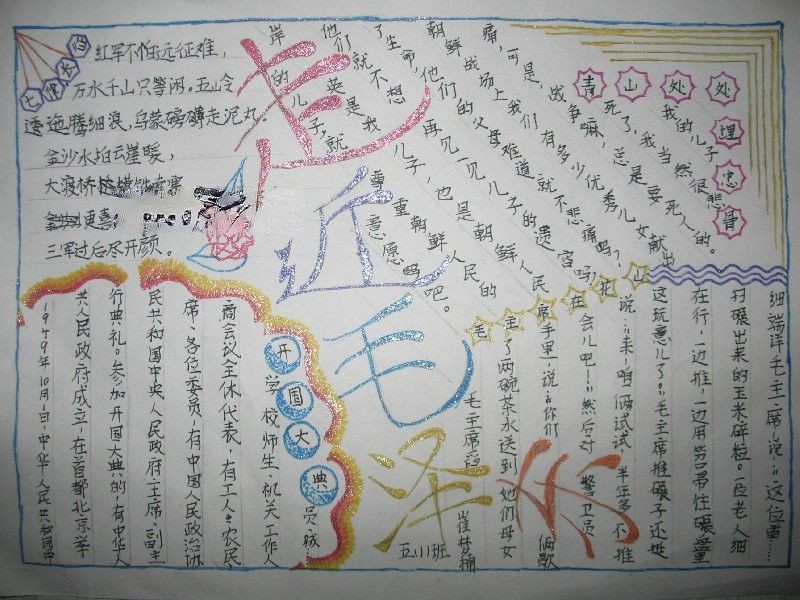 七律长征
红军不怕远征难，
万水千山只等闲。五岭
逶迤腾细浪，乌蒙磅礴走泥丸。
金沙水拍云崖暖，
大渡桥横
更喜
三军过后尽开颜。
走近毛泽东
青山处处埋忠骨
我的儿子
死了，我当然很悲
痛，可是，战争嘛，总是要死人的。
朝鲜战场上我们有多少优秀儿女献出
了生命，他们的父母难道就不悲痛吗？
他们就不想再见一见儿子的遗容吗？
岸英是我的儿子，也是朝鲜人民的
儿子，就尊重朝鲜人民的意愿吧。
开国大典
1949年10月1日，中华人民共和国中
共人民政府成立，在首都北京举
行典礼。参加开国大典的，有中华人
民共和国中央人民政府主席、副主
席、各位委员，有中国人民政治协
商会议全体代表，有工人、农民、
学校师生、机关工作人
员、城
毛主席在花山
细端详毛主席，说：“这位首……
打碾出来的玉米碎粒。一位老人细
在行，一边推，一边用笤帚往碾盘里
这玩意儿了。”毛主席推碾子还挺
说：“来，咱俩试试，半年多不推
会儿吧！”然后对警卫员
手里，说：“你们俩歇
了两碗茶水送到她们母女
毛主席
五(1)班